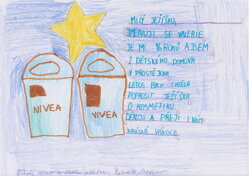 MILÝ JEŽÍŠKU,
JMENUJI SE VALERIE
JE MI 16 ROKŮ A JSEM
Z DĚTSKÉHO DOMOVA
V PROSTĚJOVĚ
LETOS BYCH CHTĚLA
POPROSIT JEŽÍŠKA
O KOSMETIKU.
DĚKUJI A PŘEJI VÁM
KRÁSNÉ VÁNOCE
NIVEA
NIVEA
Dětský domov a